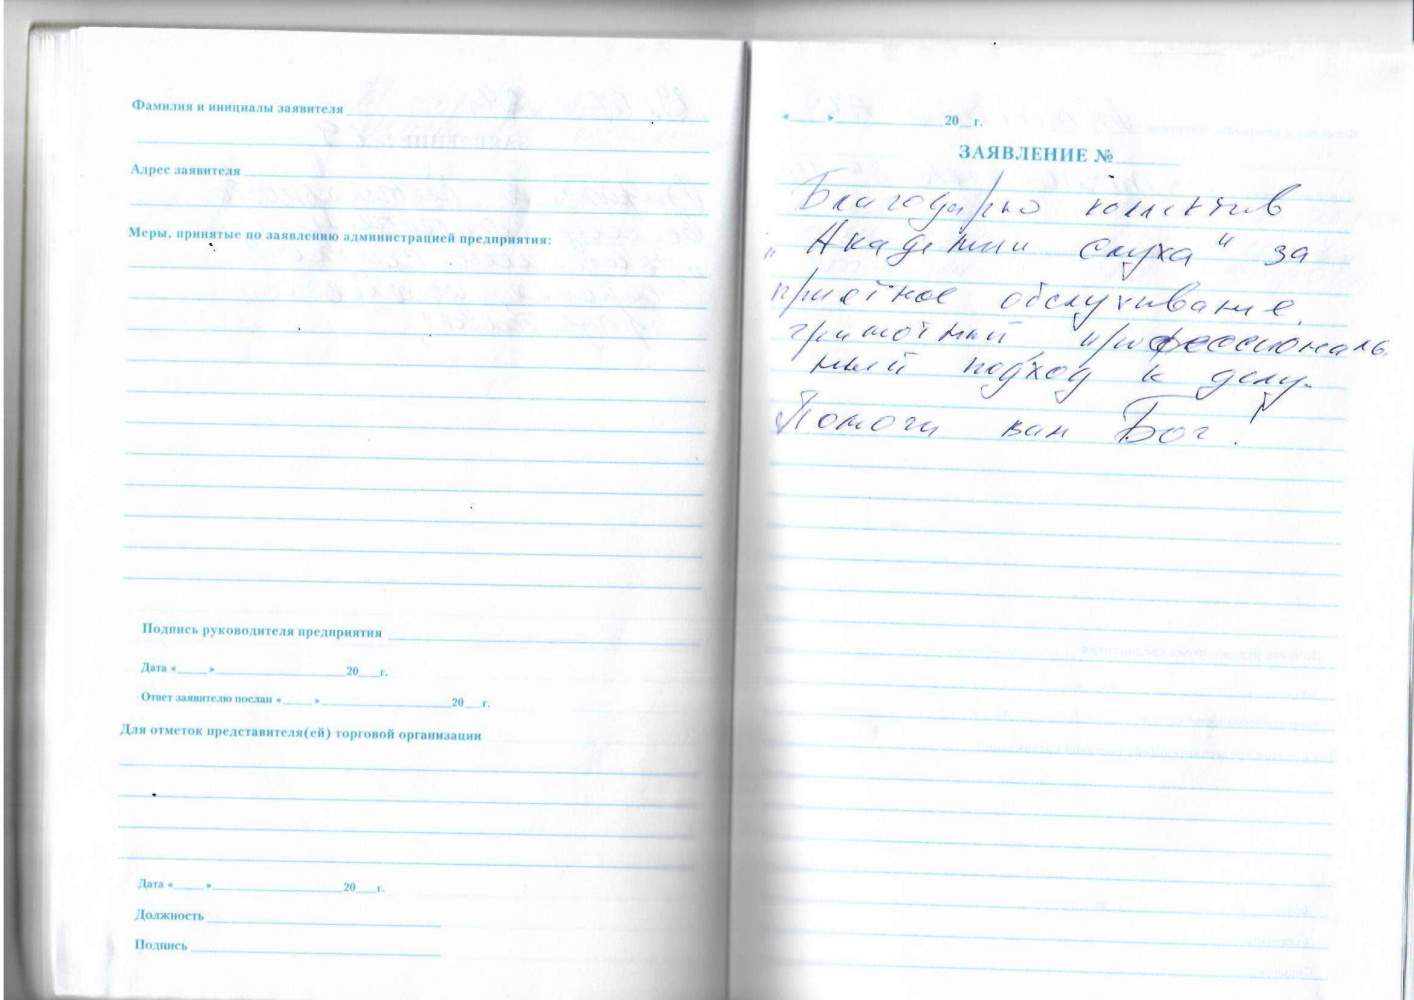 Фамилия и инициалы заявителя
Адрес заявителя
Меры, принятые по заявлению администрацией предприятия:
Подпись руководителя предприятия
Дата «____»____________20__г.
Ответ заявителю послан «____»____________20__г.
Для отметок представителя(ей) торговой организации
Дата «____»____________20__г.
Должность
Подпись
«____»____________20__г.
ЗАЯВЛЕНИЕ №
Благодарю коллектив
"Академии слуха" за
приятное обслуживание,
грамотный, профессиональ-
ный подход к делу.
Помоги вам Бог!